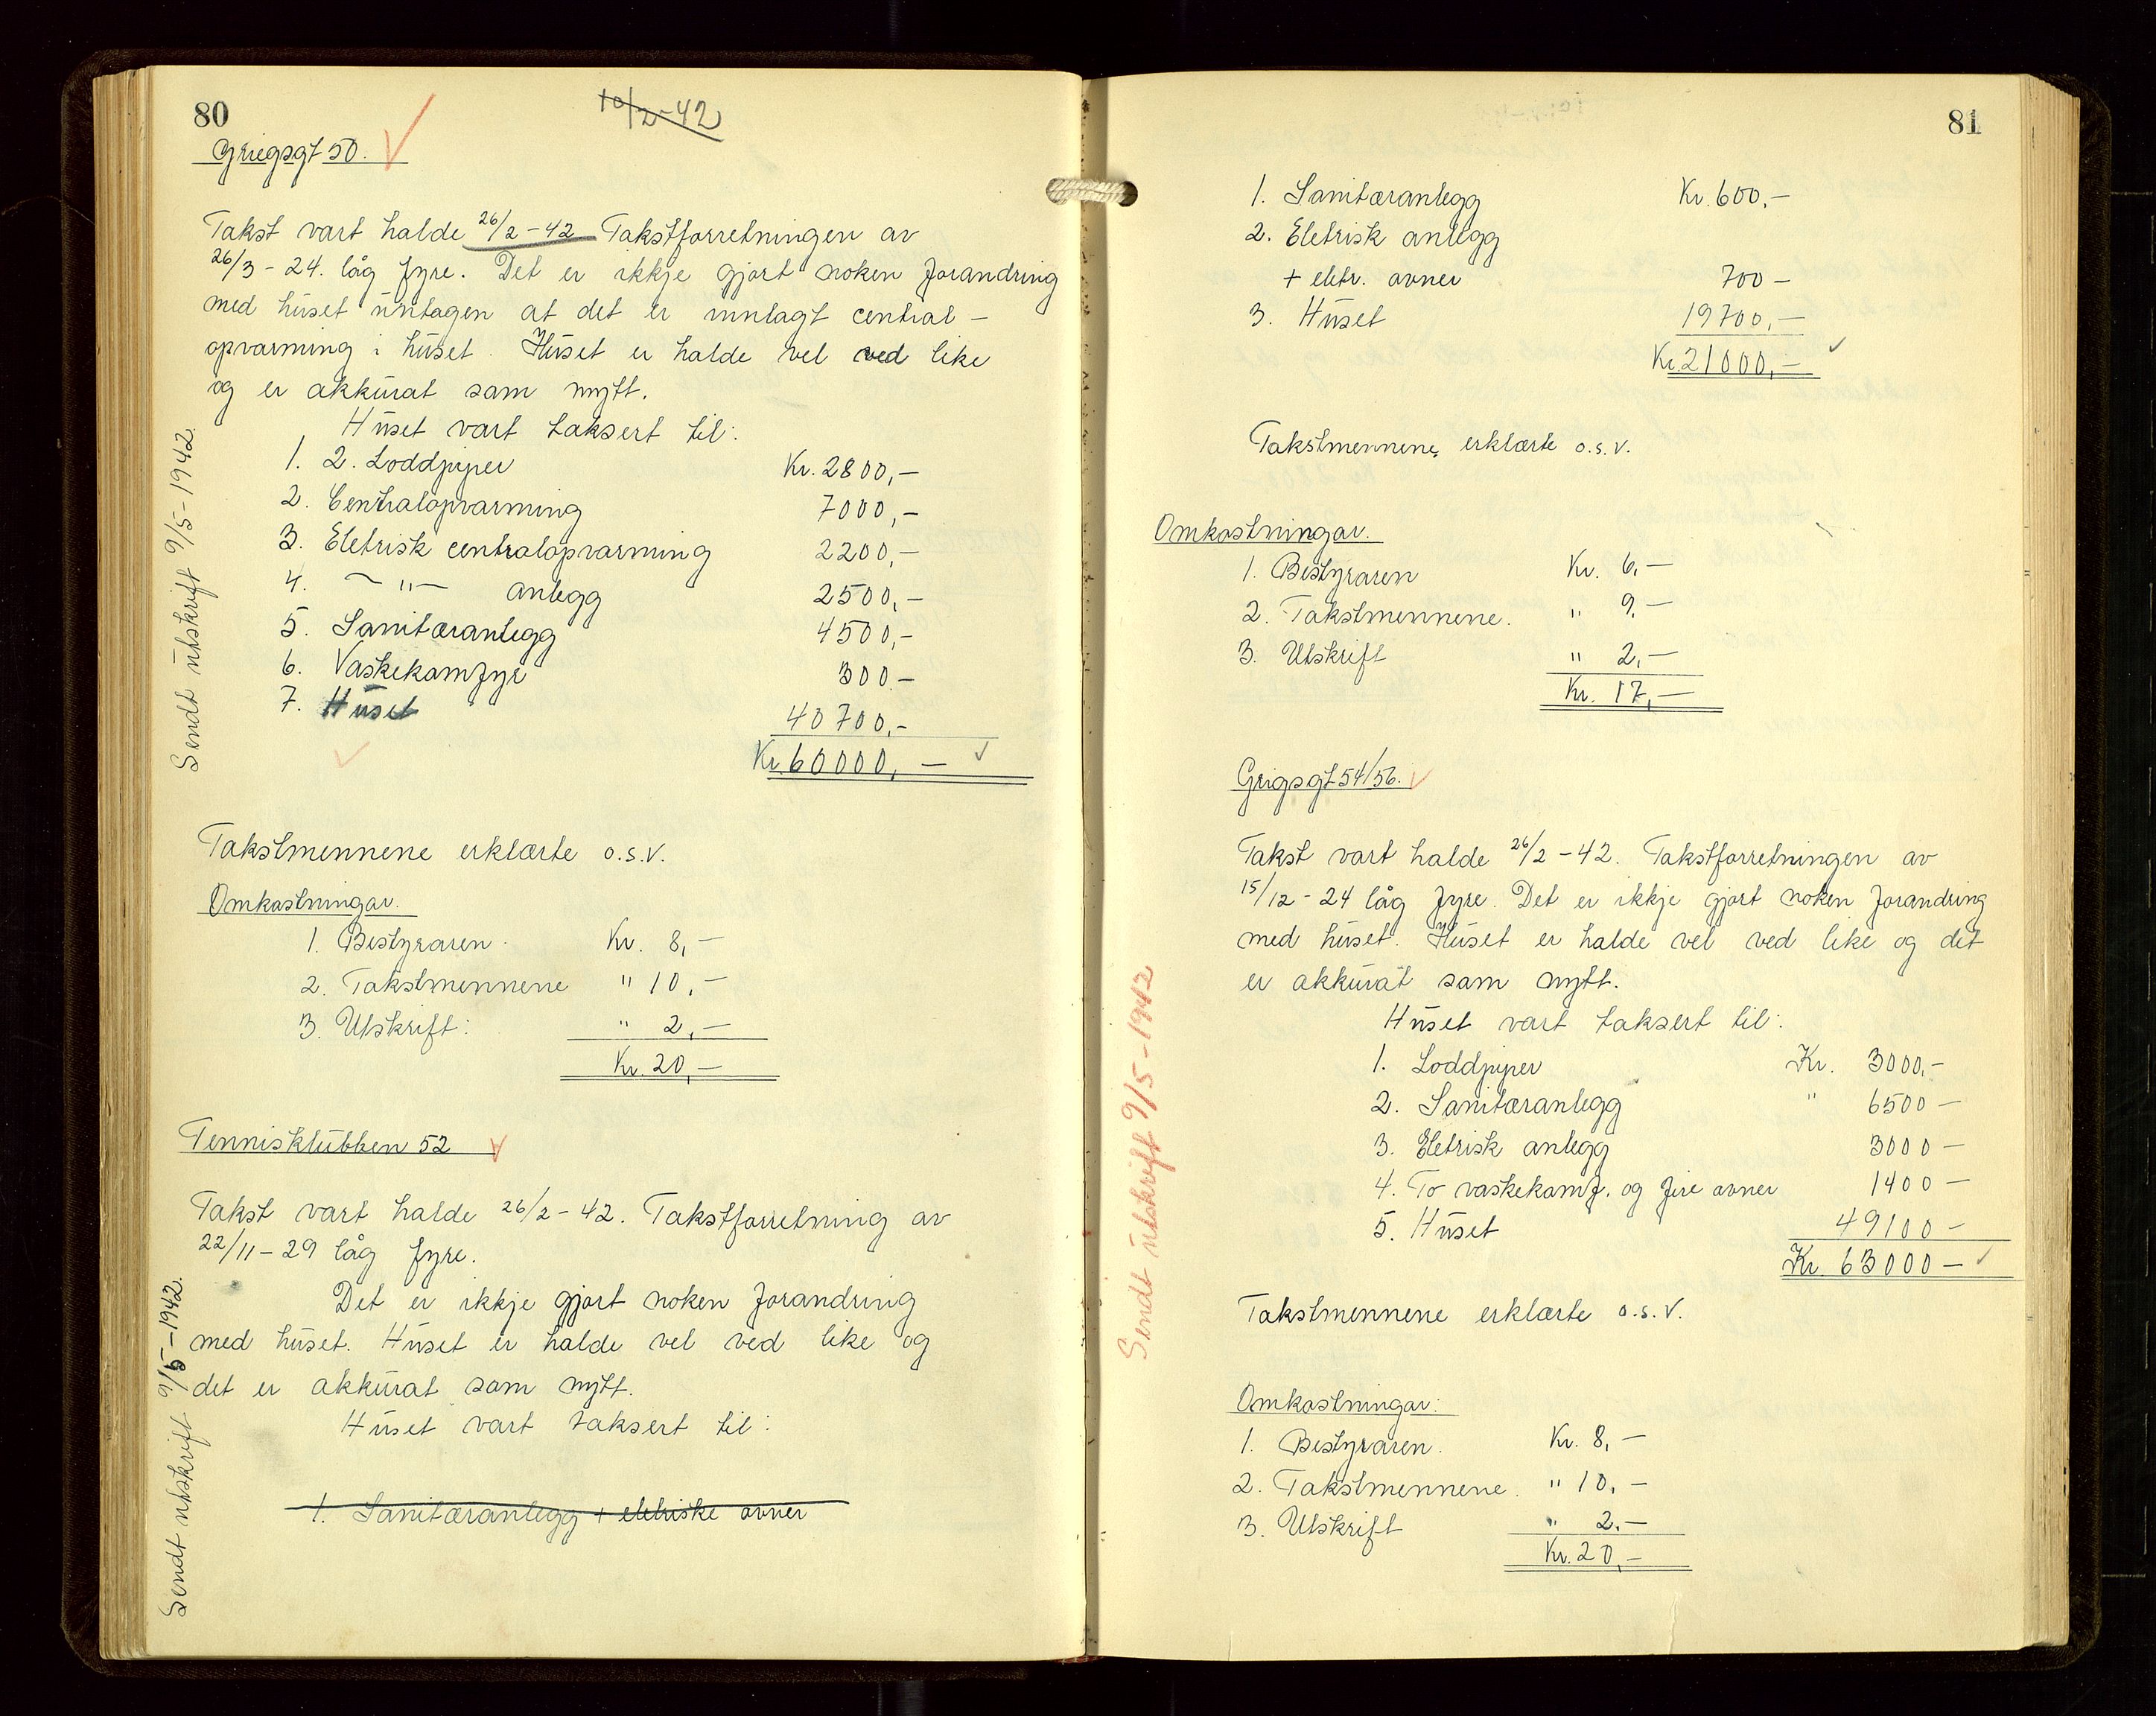 80
10/2-42
Griegsgt 50.
Takst vart halde 26/2-42 Takstforretningen av
26/3-24. låg fyre. Det er ikkje gjort noken forandring
med huset untagen at det er innlagt central-
opvarming i huset. Huset er halde vel ved like
og er akkurat som nytt.
Huset vart taksert til:
1. 2. Loddpiper Kr. 2800,-
2. Centralopvarming 7000,-
3. Eletrisk centralopvarming 2200,-
4. -"- anlegg 2500,-
5. Sanitæranlegg 4500,-
6. Vaskekomfyr 300-
7. Huset 40700,-
Kr. 60000,-
Sendt utskrift 9/5-1942.
Takstmennene erklærte o.s.v.
Omkostningar.
1. Bestyraren. Kr. 8,-
2. Takstmennene " 10,-
3. Utskrift: " 2,-
Kr. 20,-
Tennisklubben 52
Takst vart halde 26/2-42. Takstforretning av
22/11-29 låg fyre.
Det er ikkje gjort noken forandring
med huset. Huset er halde vel ved like og
det er akkurat som nytt.
Huset vart taksert til:
1. Sanitæranlegg + eletriske ovner
Sendt utskrift 9/5-1942.
81
1. Sanitæranlegg Kr. 600,-
2. Eletrisk anlegg
+ eletr. ovner 700-
3. Huset 19700,-
Kr. 21000,-
Takstmennene erklærte o.s.v.
Omkostningar.
1. Bestyraren Kr. 6,-
2. Takstmennene. " 9,-
3. Utskrift " 2,-
Kr. 17,-
Grigsgt 54/56.
Takst vart halde 26/2-42. Takstforretningen av
15/12-24 låg fyre. Det er ikkje gjort noken forandring
med huset. Huset er halde vel ved like og det
er akkurat som nytt.
Huset vart taksert til:
1. Loddpiper Kr. 3000,-
2. Sanitæranlegg " 6500-
3. Eletrisk anlegg 3000-
4. To vaskekomf. og fire ovner 1400-
5. Huset 49100-
Kr 63000-
Sendt utskrift 9/5-1942
Takstmennene erklærte o.s.v.
Omkostningar:
1. Bestyraren. Kr. 8,-
2. Takstmennene. " 10,-
3. Utskrift " 2,-
Kr. 20,-